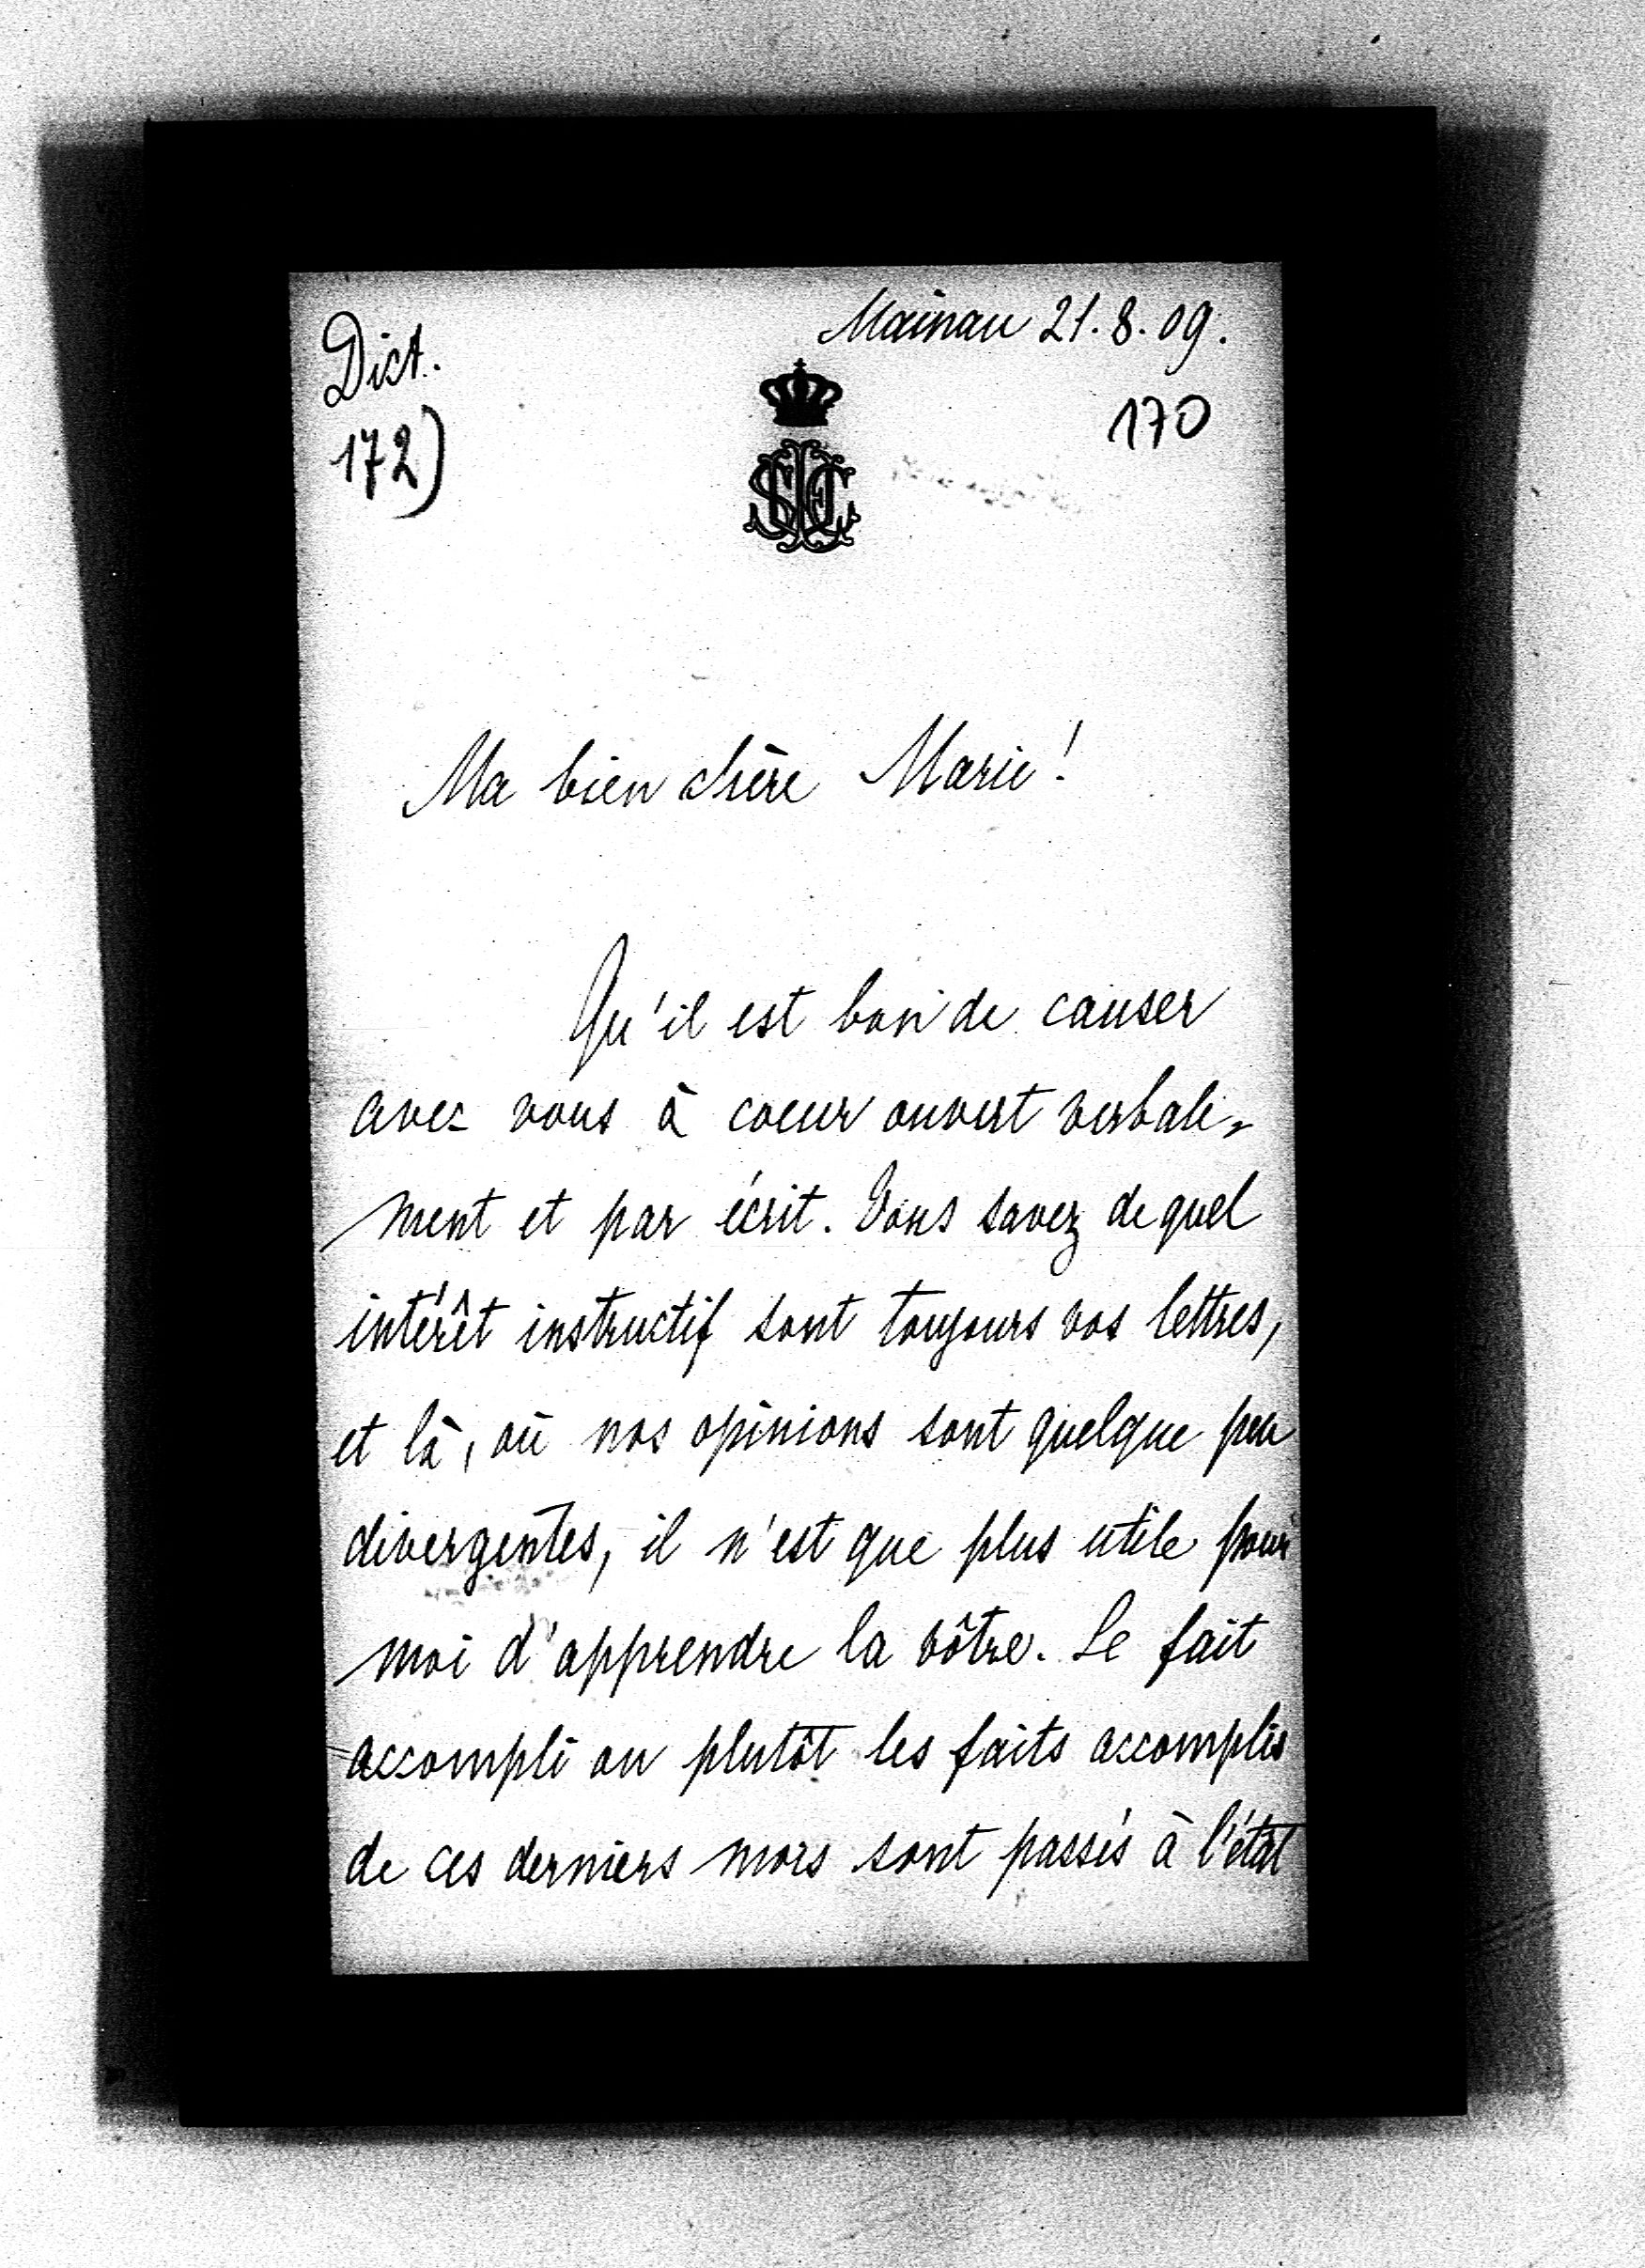 Dict.
Mainau 21.8.09.
172)
170
Ma bien chère Marie!
Qu'il est bon de causer
avec vous à coeur ouvert verbale-
ment et par écrit. Vous savez de quel
intérêt instructif sont toujours vos lettres,
et là, où nos opinions sont quelque peu
divergentes, il n'est que plus utile pour
moi d'apprendre la vôtre. Le fait
accompli ou plutôt les faits accomplis
de ces derniers mois sont passés à l'état